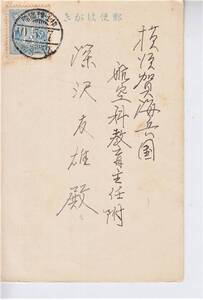 郵便はがき
横須賀海兵団
航空科教育主任附
深沢友雄殿